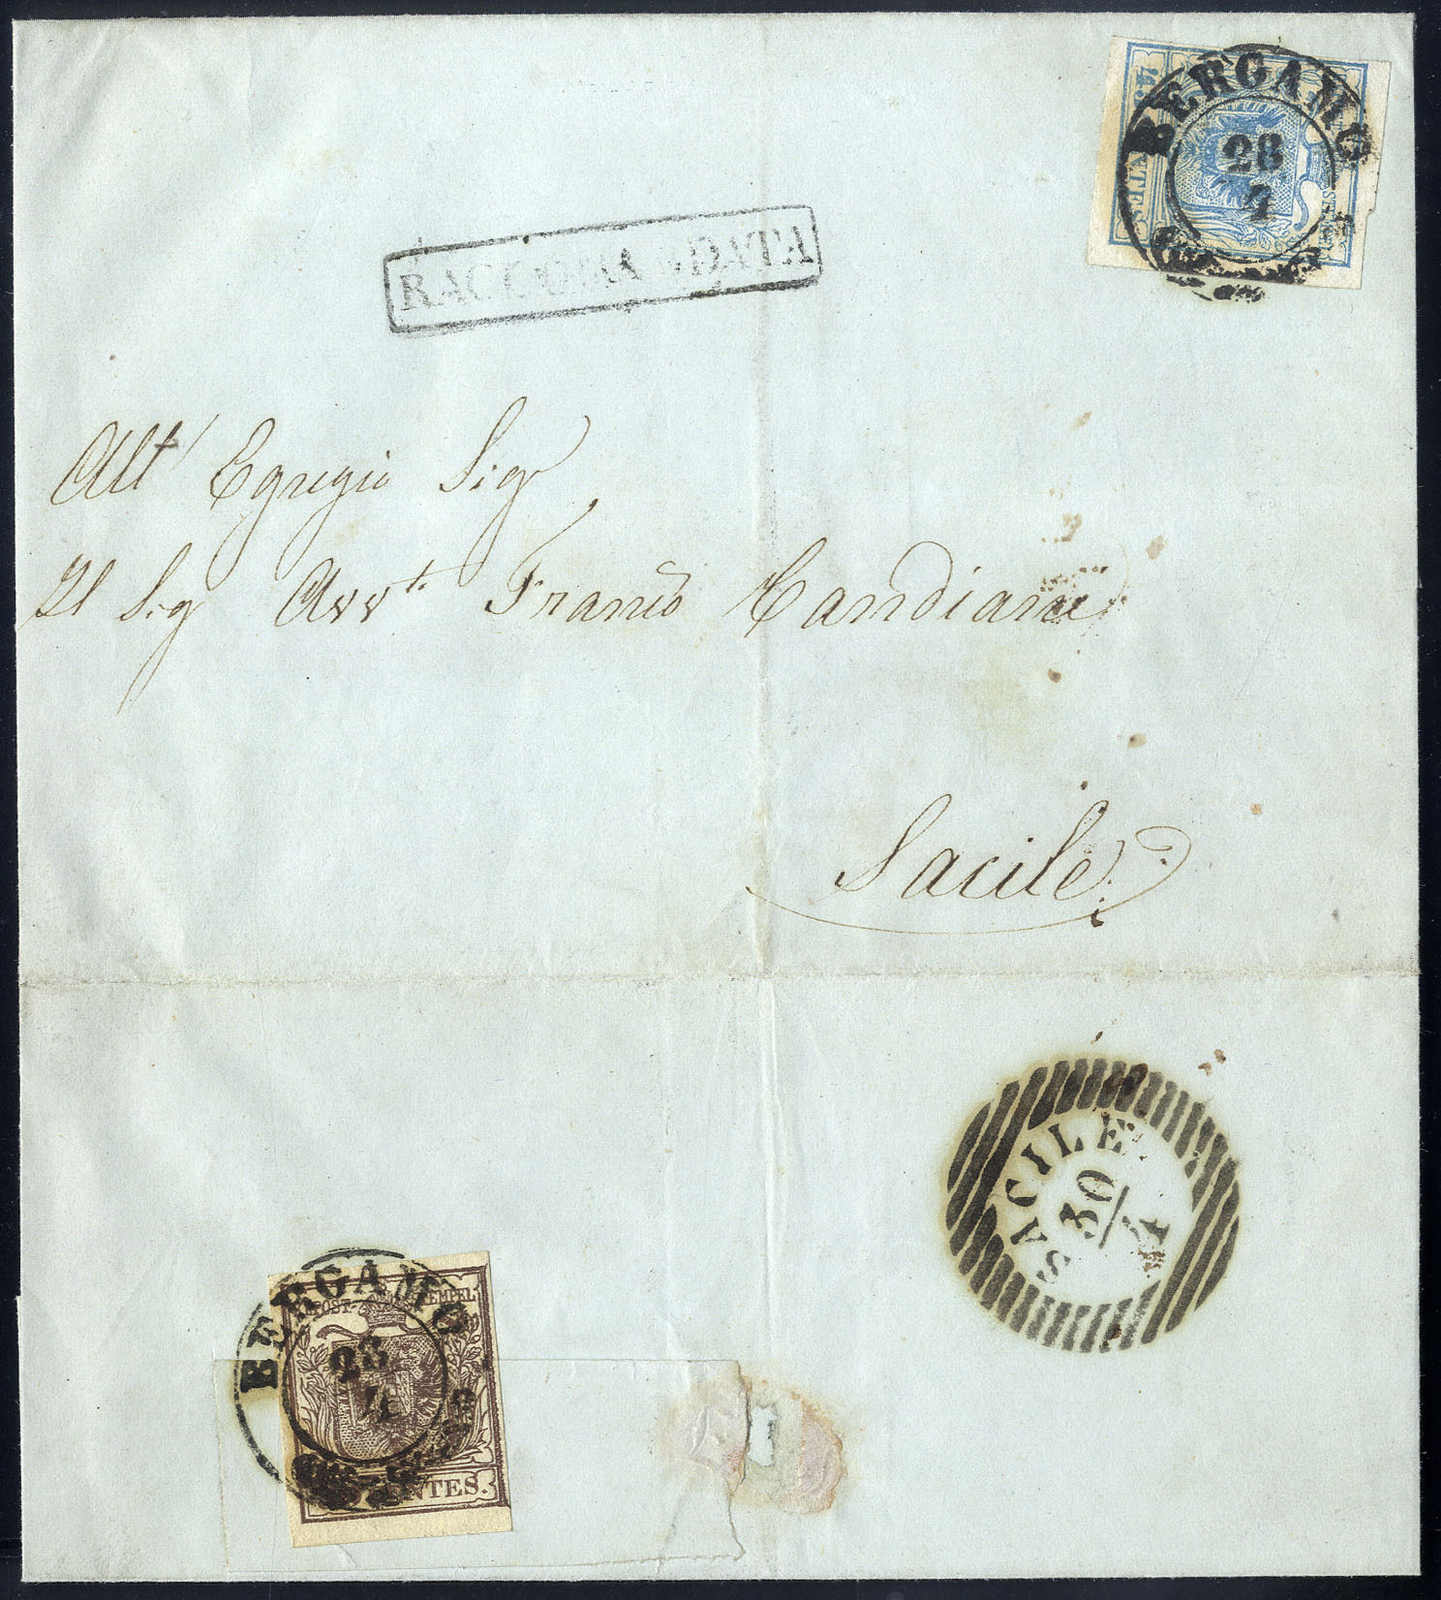 BERGAMO
28
4
45 CENTES.
RACCOMANDATA
All' Egregio Sigr
Il Sig Avvto. Francò Candiani
Sacile
SACILE
30
4
BERGAMO
28
4
KKPOST-STEMPEL
CENTES.